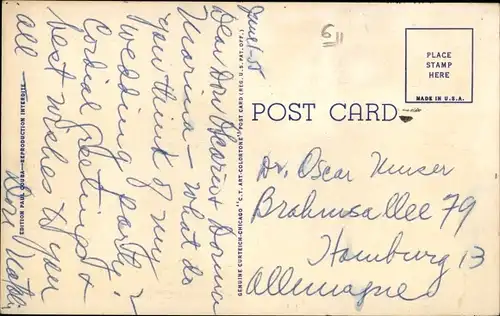 June 1-58
Dear Don Oscar & Norma
Marina — what do
you think of my
wedding party?
Cordial greetings &
best wishes to you
all —
Don
EDITION PAUL COUBA—REPRODUCTION INTERDITE
GENUINE CURTEICH-CHICAGO "C.T. ART-COLORTONE" POST CARD (REG. U.S. PAT. OFF.)
6 11
PLACE
STAMP
HERE
MADE IN U.S.A.
POST CARD
Dr. Oscar
Brahmsallee 79
Hamburg 13
Allemagne